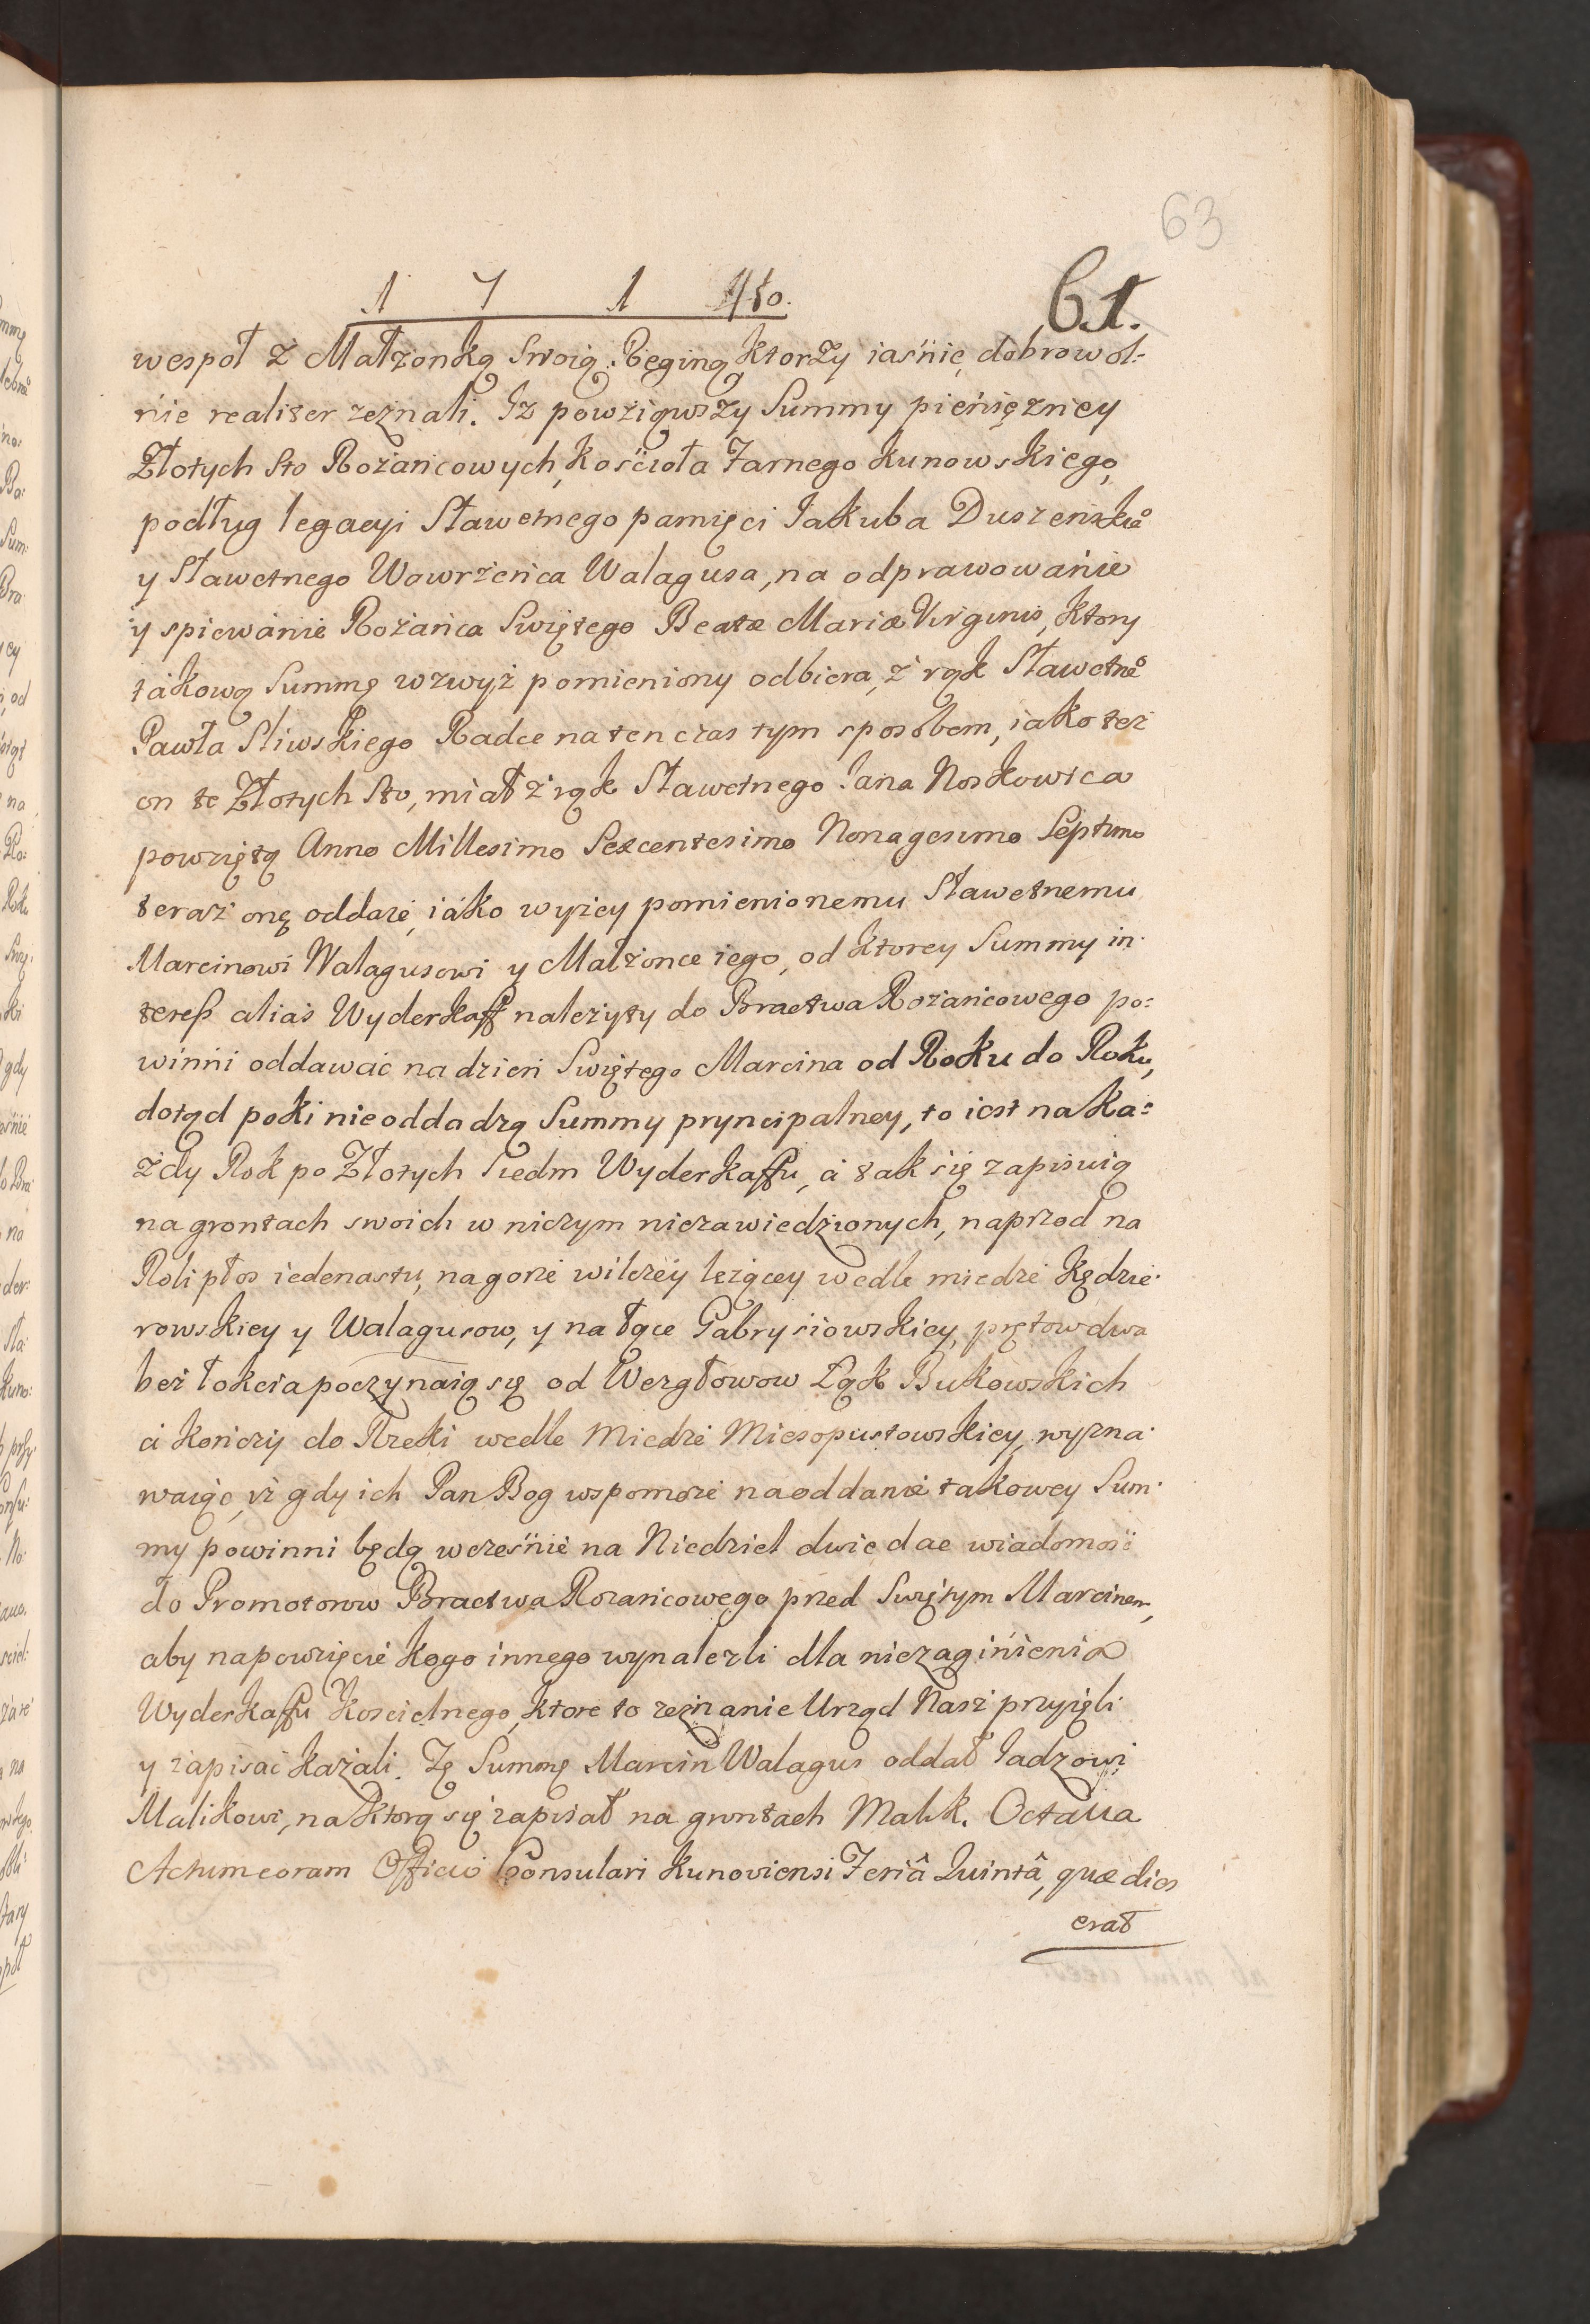 63
1 7 1 4to. 61.
wespoł z Małżonką Swoią Reginą, ktorzy iaśnie, dobrowol:
nie realiter zeznali. Iz powziąwszy Summy pieniężney
Złotych Sto Rożańcowych, Kościoła Farnego Kunowskiego,
podług legacyi Sławetnego pamięci Jakuba Duszeńskieo
y Sławetnego Wawrzeńca Walagusa, na odprawowanie
y spiewanie Rożańca Swiętego Beatæ Mariæ Virginis, Ktory
takową Summę wzwyż pomieniony odbiera, z rąk Sławetneo
Pawła Sliwskiego Radce na ten czas tym sposobem, iako też
on te Złotych Sto, miał z rąk Sławetnego Jana Noskowica
powziętą Anno Millesimo Sexcentesimo Nonagesimo Septimo
teraz onę oddaie, iako wyżey pomienionemu Sławetnemu
Marcinowi Walagusowi y Małżonce iego, od Ktorey Summy in:
teress alias Wyderkaff należyty do Bractwa Rożańcowego po:
winni oddawać na dzień Swiętego Marcina od Roku do Roku,
dotąd poki nie oddadzą Summy pryncipalney, to iest na Ka:
żdy Rok po Złotych Siedm Wyderkaffu, a tak się zapisuią
na grontach swoich w niczym niezawiedzionych, naprzod na
Roli płos iedenastu, na gorze wilczey leżącey wedle miedze Kędzie:
rowskiey y Walagusow, y na łące Gabrysiowskiey, prętow dwa
bez łokcia poczynaią się od Wezgłowow Łąk Bukowskich
a kończy do Rzeki wedle Miedze Miesopustowskiey, wyzna:
waiąc, iż gdy ich Pan Bog wspomoże na oddanie takowey Sum:
my powinni będą wcześnie na Niedziel dwie dac wiadomość
do Promotorow Bractwa Rozańcowego przed Swiętym Marcinem,
aby na powzięcie kogo innego wynalezli dla niezaginienia
Wyderkaffu Koscielnego, ktore to zeznanie Urząd Nasz przyięli
y zapisać Kazali. Tę Summę Marcin Walagus oddał Jadzowi
Malikowi, na Ktorą się zapisał na grontach Malik. Octava
Actum coram Officio Consulari Kunoviensi Feriâ Quintâ, quæ dies
erat